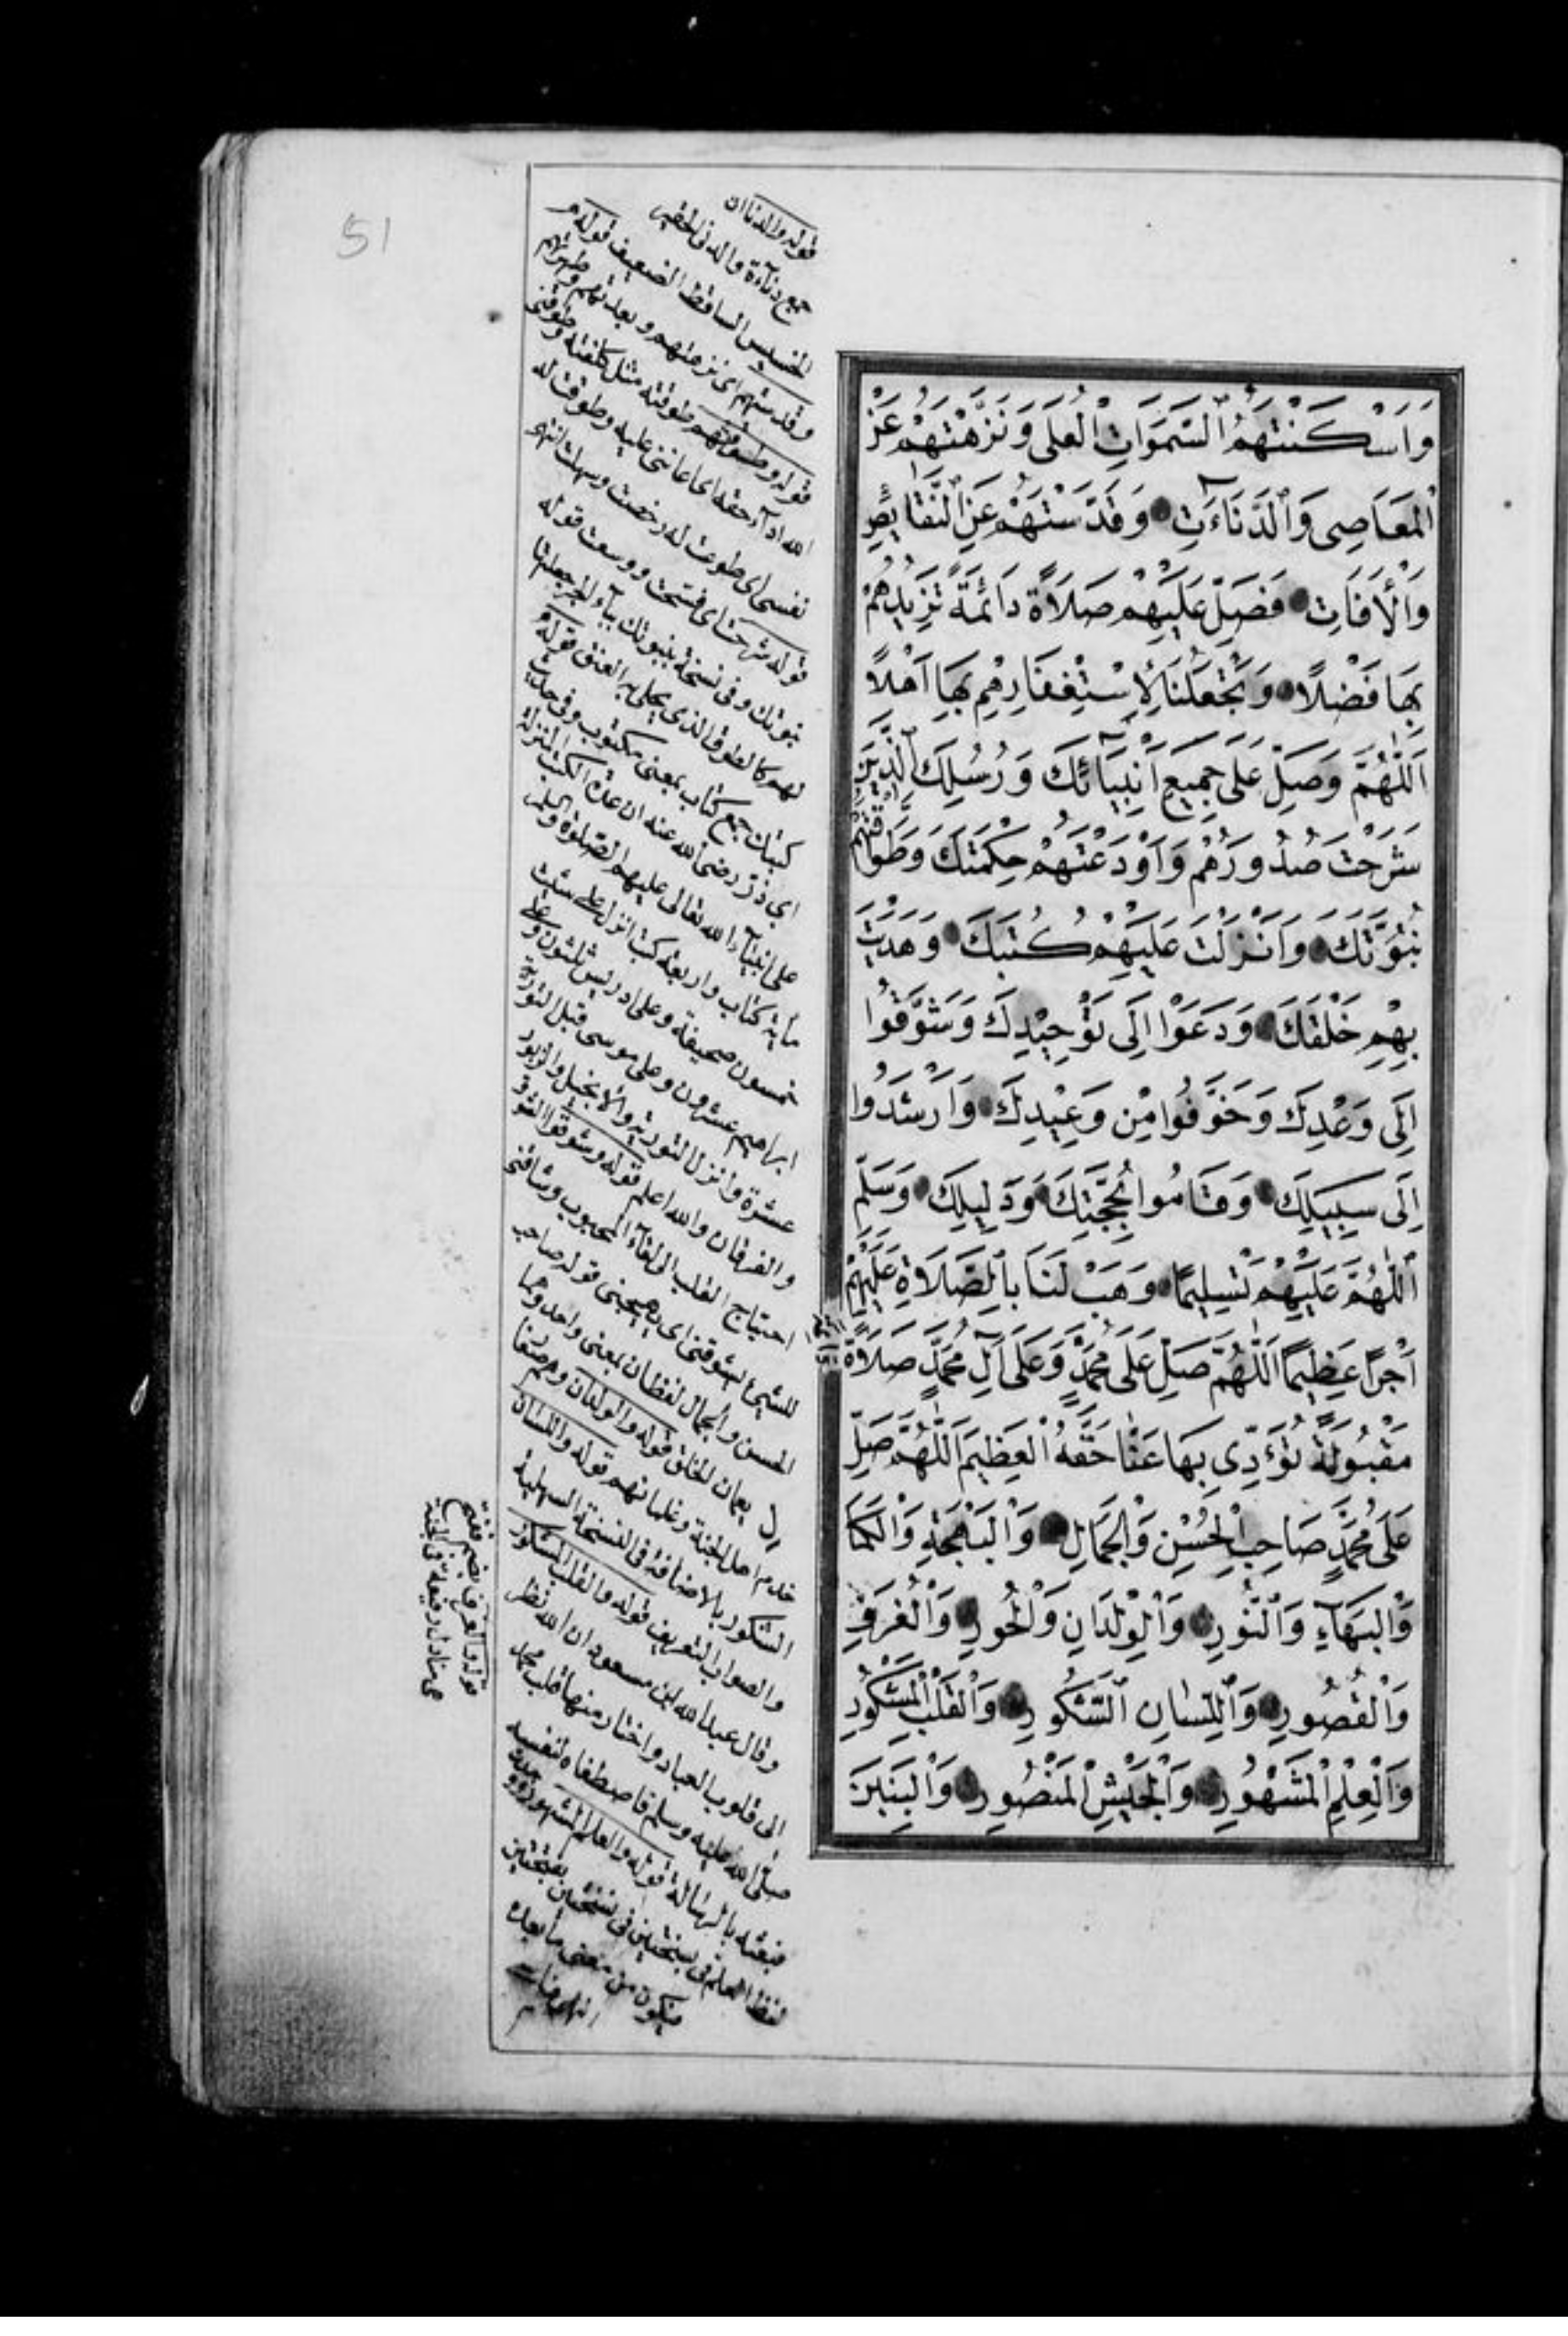 51
وَاَسْكَنْتَهُمُ السَّمَوَاتِ الْعُلَى وَنَزَّهْتَهُمْ عَنْ
الْمَعَاصِى وَالدَّنَاءَتِ وَقَدَّسْتَهُمْ عَنِ النَّقَائِصِ
وَالْأَفَاتِ فَصَلِّ عَلَيْهِمْ صَلَاةً دَائِمَةً تَزِيدُهُمْ
بِهَا فَضْلًا وَتَجْعَلُنَا لِاِسْتِغْفَارِهِمْ بِهَا اَهْلًا
اَللّٰهُمَّ وَصَلِّ عَلَى جَمِيعِ اَنْبِيَائِكَ وَرُسُلِكَ الَّذِينَ
شَرَحْتَ صُدُورَهُمْ وَاَوْدَعْتَهُمْ حِكْمَتَكَ وَطَوَّقْتَهُمْ
نُبُوَّتَكَ وَاَنْزَلْتَ عَلَيْهِمْ كُتُبَكَ وَهَدَيْتَ
بِهِمْ خَلْقَكَ وَدَعَوْا اِلَى تَوْحِيْدِكَ وَشَوَّقُوا
اِلَى وَعْدِكَ وَخَوَّفُوا مِنْ وَعِيْدِكَ وَاَرْشَدُوا
اِلَى سَبِيلِكَ وَقَامُوا بِحُجَّتِكَ وَدَلِيلِكَ وَسَلِّمِ
اللّٰهُمَّ عَلَيْهِمْ تَسْلِيمًا وَهَبْ لَنَا بِالصَّلَاةِ عَلَيْهِمْ
اَجْرًا عَظِيمًا اَللّٰهُمَّ صَلِّ عَلَى مُحَمَّدٍ وَعَلَى اٰلِ مُحَمَّدٍ صَلَاةً
مَقْبُولَةً تُؤَدِّى بِهَا عَنَّا حَقَّهُ الْعَظِيمَ اَللّٰهُمَّ صَلِّ
عَلَى مُحَمَّدٍ صَاحِبِ الْحُسْنِ وَالْجَمَالِ وَالْبَهْجَةِ وَالْكَمَا
وَالْبَهَآءِ وَالنُّورِ وَالْوِلْدَانِ وَالْحُورِ وَالْغُرَفِ
وَالْقُصُورِ وَاللِّسَانِ الشَّكُورِ وَالْقَلْبِ الْمَشْكُورِ
وَالْعِلْمِ الْمَشْهُورِ وَالْجَيْشِ الْمَنْصُورِ وَالْبَنِينَ
قوله والدناات
جمع دنآءة والدنى الحقير
الخسيس الساقط الضعيف قوله
وقدستهم اى نزهتهم وبعدتهم وطهرتهم
قوله وطوقتهم طوقته مثل كلفته وطوقنى
الله ادآء حقه اى اعاننى عليه وطوقت له
نفسى اى طوعت له رخصت وسهلت انتهى
قوله شرحت اى فتحت ووسعت قوله
نبوتك وفى نسخة بنبوتك ببآء الجر جعلتها
لهم كالطوق الذى يحلى به العنق قوله
كتبك جمع كتاب بمعنى مكتوب وفى حديث
ابى ذر رضى الله عنه ان عدة الكتب المنزلة
على انبيآء الله تعالى عليهم الصلوة والسلام
مأية كتاب واربعة كتب انزل على شيث
خمسون صحيفة وعلى ادريس ثلثون وعلى
ابراهيم عشرون وعلى موسى قبل التورية
عشرة وانزل التورية والانجيل والزبور
والفرقان والله اعلم قوله وشوقوا الشوق
احتياج القلب الى لقآء المحبوب وشاقنى
للشئ وشوقنى اى هيجنى قوله صاحب
الحسن والجمال لفظان بمعنى واحد وهما
يعمان الخلق قوله والولدان وهم صفا
خدم اهل الجنة وغلمانهم قوله واللسان
الشكور بالاضافة فى النسخة السهلية
والصواب التعريف قوله والقلب المشكور
وقال عبد الله ابن مسعود ان الله نظر
الى قلوب العباد واختار منها قلب محمد
صلى الله عليه وسلم فاصطفاه لنفسه
فبعثه بالرسالة قوله والعلم المشهور
لفظ العلم فى نسختين بفتحتين
فيكون من معنى ما بعده
قوله والغرف بضم ففتح
هى منازل رفيعة فى الجنة